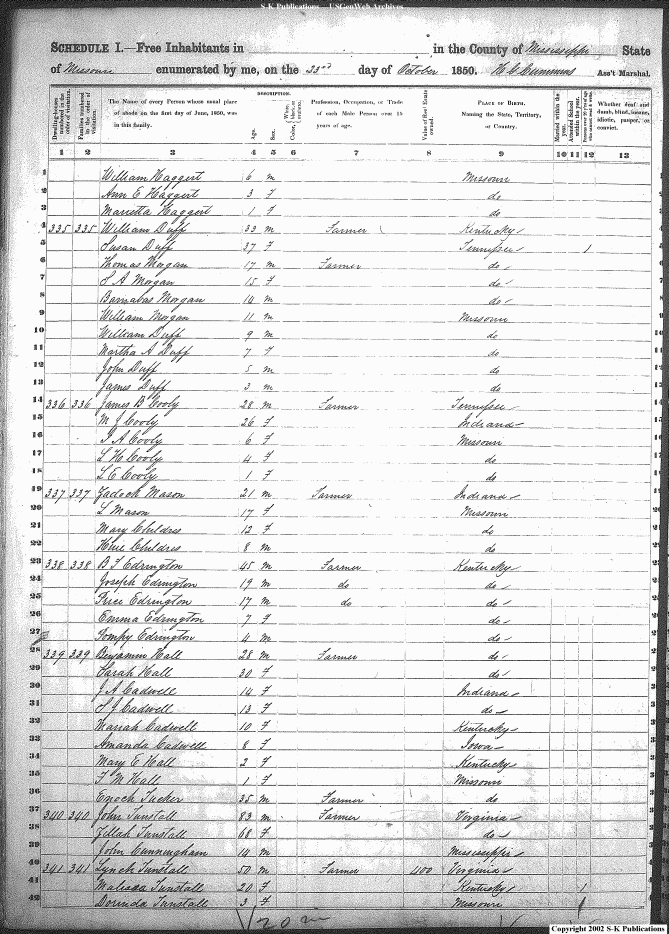 S-K Publications — USGenWeb Archives
SCHEDULE I.—Free Inhabitants in in the County of Mississippi State
of Missouri enumerated by me, on the 23rd day of October 1850. Ass't Marshal.
Dwelling-houses numbered in the order of visitation. Families numbered in the order of visitation. The Name of every Person whose usual place of abode on the first day of June, 1850, was in this family. DESCRIPTION. Age. Sex. Color, White, black, or mulatto. Profession, Occupation, or Trade of each Male Person over 15 years of age. Value of Real Estate owned. PLACE OF BIRTH. Naming the State, Territory, or Country. Married within the year. Attended School within the year. Persons over 20 y'rs of age who cannot read & write. Whether deaf and dumb, blind, insane, idiotic, pauper, or convict.
1 2 3 4 5 6 7 8 9 10 11 12 13
1 William Haggert 6 m Missouri
2 Ann E Haggert 3 F do
3 Marietta Haggert 1 F do
4 335 335 William Duff 33 m Farmer Kentucky
5 Susan Duff 37 F Tennessee 1
6 Thomas Morgan 17 m Farmer do
7 S A Morgan 15 F do
8 Barnabas Morgan 10 m do
9 William Morgan 11 m Missouri
10 William Duff 9 m do
11 Martha A Duff 7 F do
12 John Duff 5 m do
13 James Duff 3 m do
14 336 336 James B Cooly 28 m Farmer Tennessee
15 M J Cooly 26 F Indiana
16 A Cooly 6 F Missouri
17 L H Cooly 4 F do
18 L E Cooly 1 F do
19 337 337 Zadoch Mason 21 m Farmer Indiana
20 L Mason 17 F Missouri
21 Mary Childres 12 F do
22 Childres 8 m do
23 338 338 B F Edrington 45 m Farmer Kentucky
24 Joseph Edrington 19 m do do
25 Price Edrington 17 m do do
26 Emma Edrington 7 F do
27 Pompy Edrington 4 m do
28 339 339 Benjamin Hall 28 m Farmer do
29 Sarah Hall 30 F do
30 J A Cadwell 14 F Indiana
31 S J Cadwell 13 F do
32 Mariah Cadwell 10 F Kentucky
33 Amanda Cadwell 8 F Iowa
34 Mary E Hall 2 F Kentucky
35 F M Hall 1 F Missouri
36 Enoch Tucker 35 m Farmer do
37 340 340 John Tunstall 83 m Farmer Virginia
38 Zillah Tunstall 68 F do
39 John Cunningham 14 m Mississippi
40 341 341 Lynch Tunstall 50 m Farmer 400 Virginia
41 Malissa Tunstall 20 F Kentucky 1
42 Dorinda Tunstall 3 F Missouri
20 m
Copyright 2002 S-K Publications